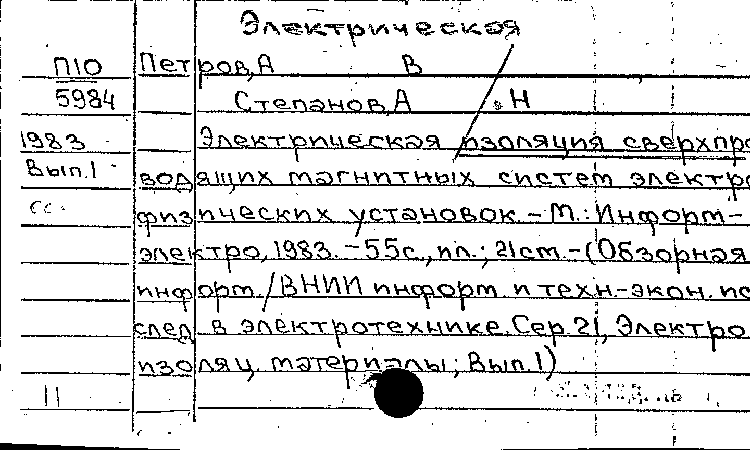 Электрическая
П10 Петров, А В
5984 Степанов, А . Н
1983 Электрическая изоляция сверхпро
Вып.1 водящих магнитных систем электро
сс. физических установок. - М.: Информ-
электро, 1983. - 55с., ил.; 21см. - (Обзорная
информ. / ВНИИ информ. и техн.-экон. ис
след. в электротехнике. Сер. 21, Электро
изоляц. материалы; Вып.1)
11